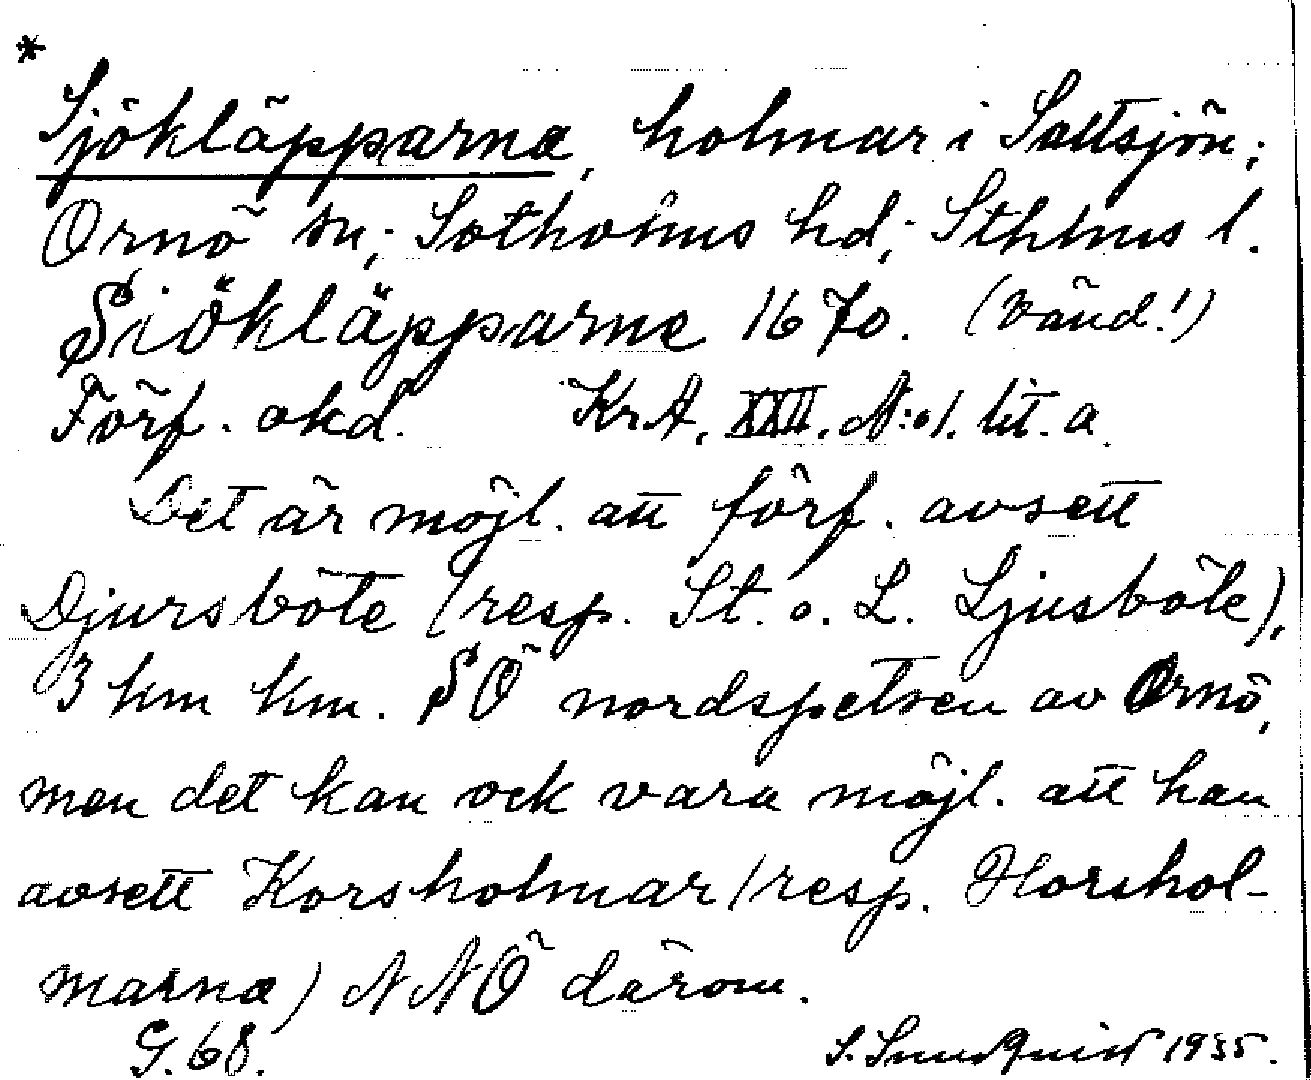 *
Sjökläpparna, holmar i Saltsjön;
Ornö sn; Sotholms hd; Sthlms l.
Siökläpparne 1670. (Vänd!)
Förf. okd. KrA. XXII. N:o 1. lit. a.
Det är möjl. att förf. avsett
Djursböte (resp. St. o. L. Ljusböte),
3 km km. SÖ nordspetsen av Ornö,
men det kan ock vara möjl. att han
avsett Korsholmar (resp. Horshol-
marna) NNÖ därom.
G. 68. S. Sundquist 1935.